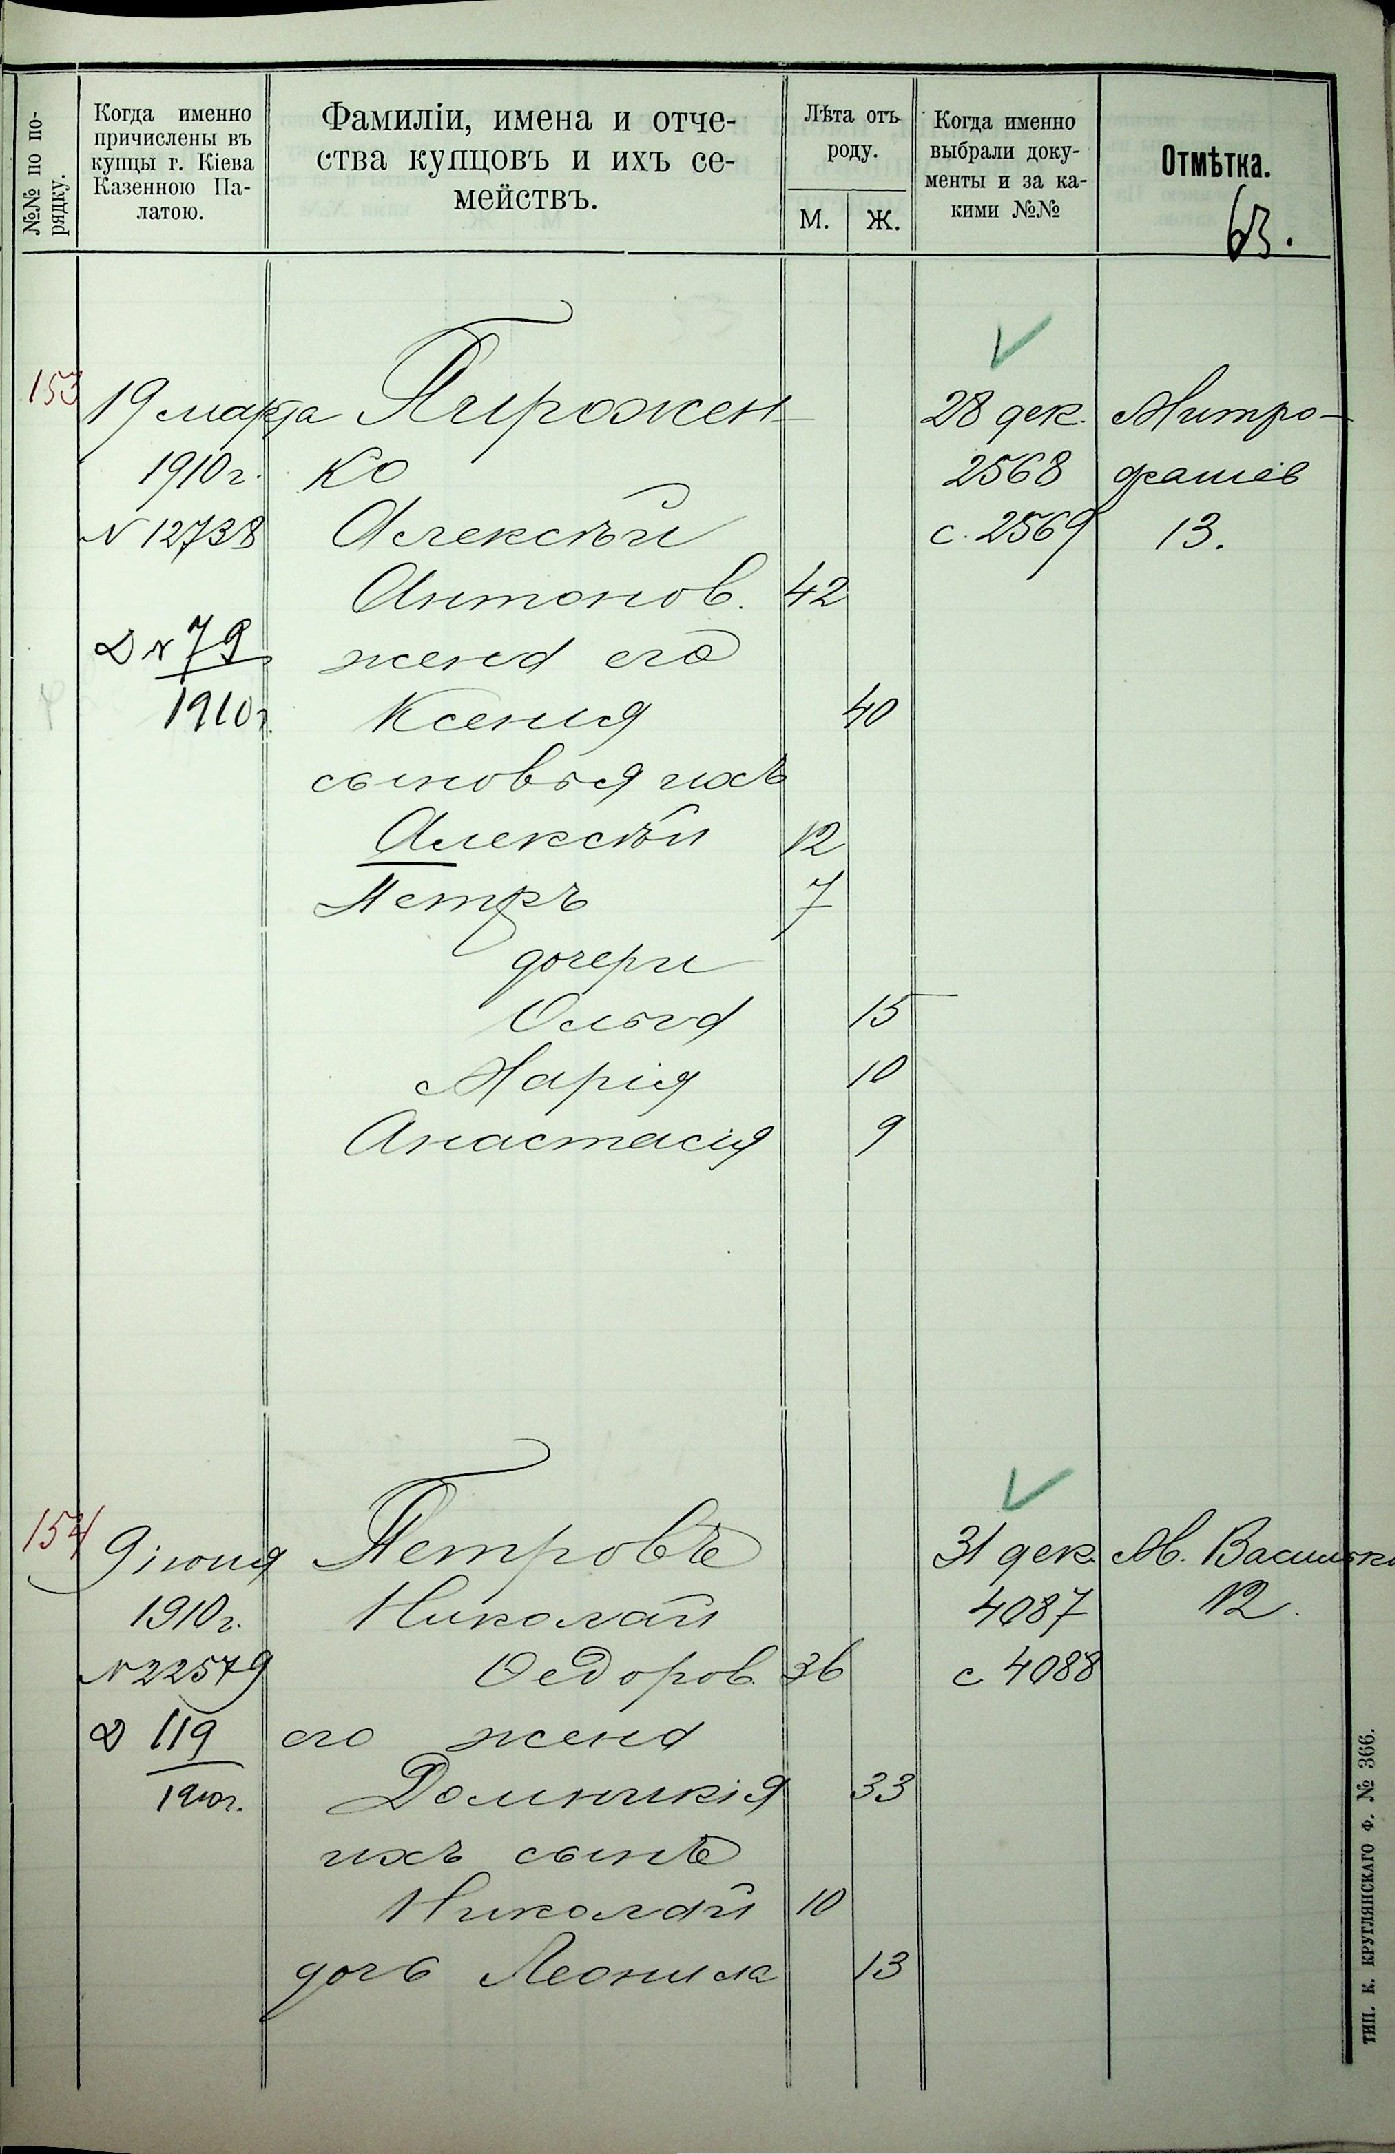 №№ по по-
рядку.
Когда именно
причислены въ
купцы г. Кіева
Казенною Па-
латою.
Фамиліи, имена и отче-
ства купцовъ и ихъ се-
мействъ.
Лѣта отъ
роду.
М. Ж.
Когда именно
выбрали доку-
менты и за ка-
кими №№
Отмѣтка.
63.
153 19 марта Пирожен- 28 дек. Митро-
1910 г. ко 2568 фаніев
N 12738 Алексѣй с. 2569 13.
Антонов. 42
Д N 79 жена его
1910 г. Ксенія 40
сыновья ихъ
Алексѣй 12
Петръ 7
дочери
Ольга 15
Марія 10
Анастасія 9
154 9 іюня Петровъ 31 дек. М. Васильк
1910 г. Николай 4087 12.
N 22579 Ѳедоров. 36 с 4088
Д 119 его жена
1910 г. Домникія 33
ихъ сынъ
Николай 10
дочь Леонила 13
ТИП. К. КРУГЛЯНСКАГО Ф. № 366.